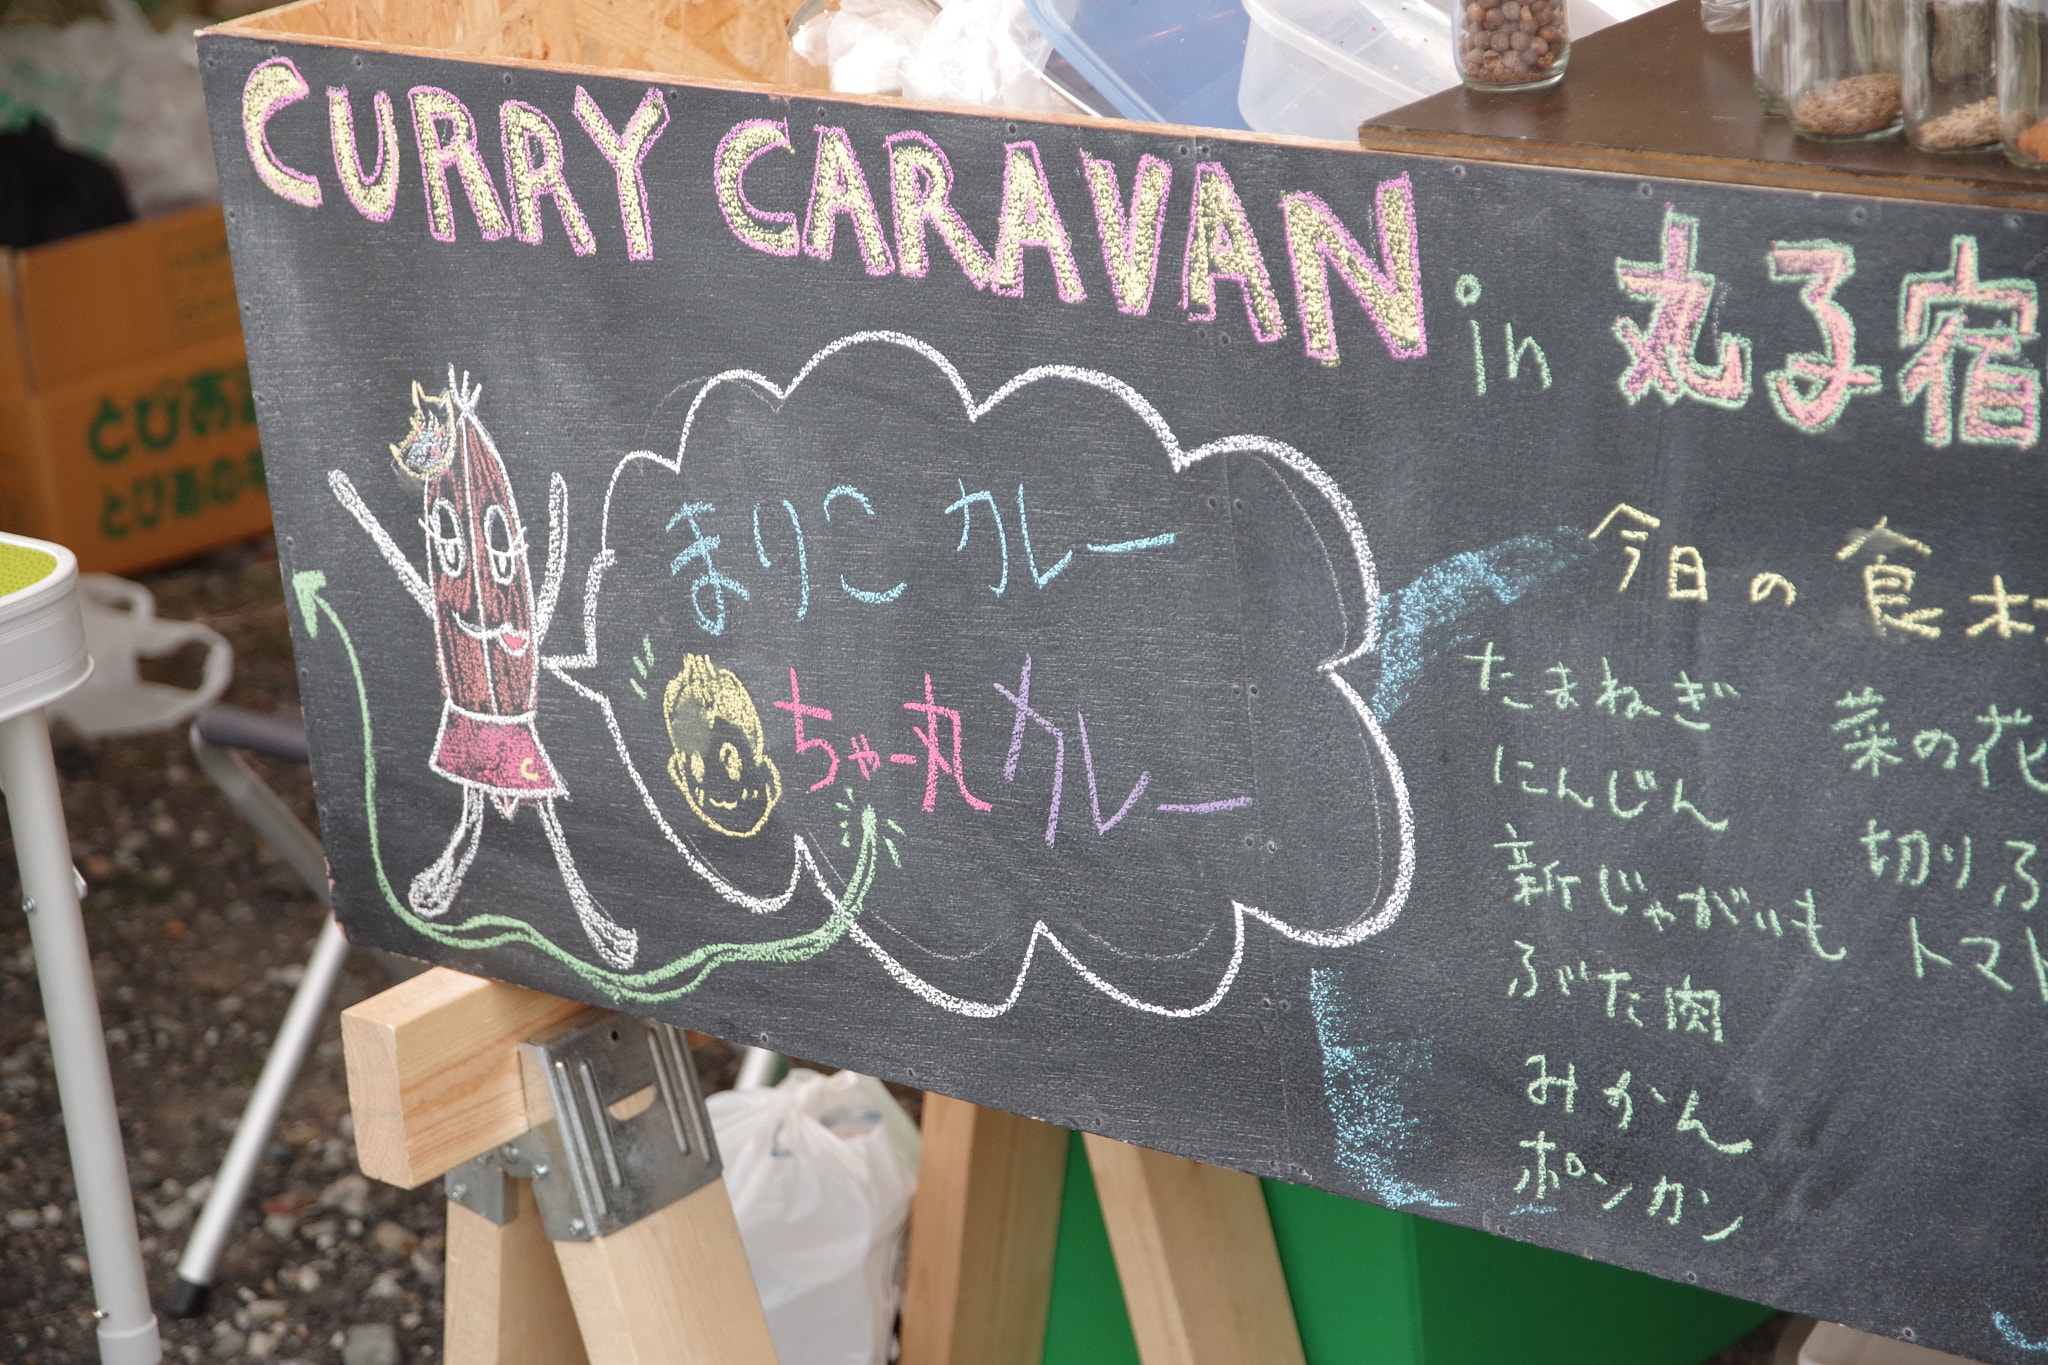 CURRY CARAVAN in 丸子宿
まりこカレー
ちゃー丸カレー
今日の食材
たまねぎ
にんじん
新じゃがいも
ぶた肉
みかん
ポンカン
菜の花
切り
トマト
とぴあ